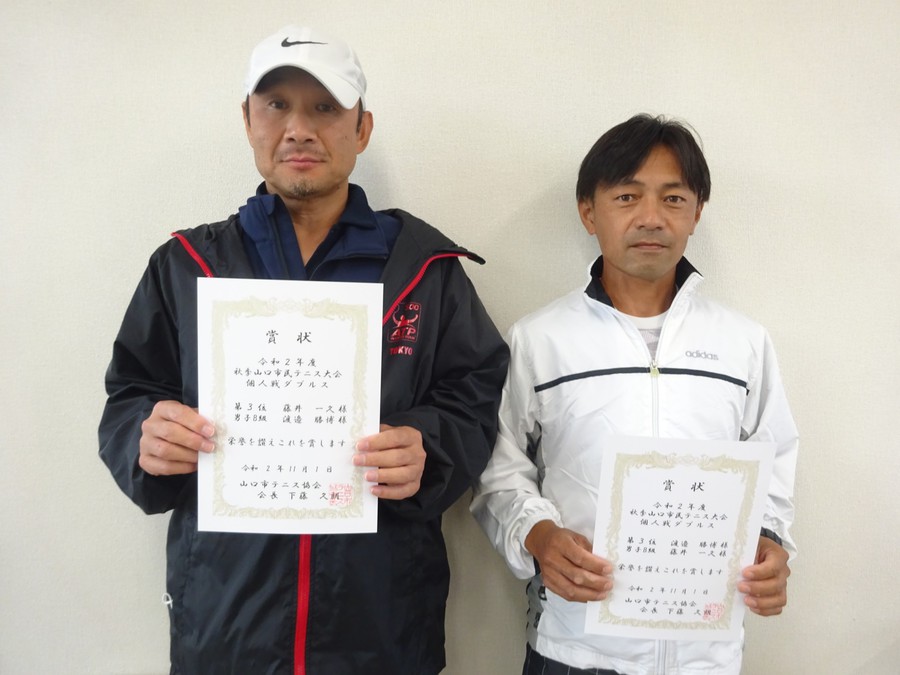 賞状
令和2年度
秋季山口市民テニス大会
個人戦ダブルス
第3位 藤井 一久様
男子B級 渡邉 勝博様
栄誉を讃えこれを賞します
令和2年11月1日
山口市テニス協会
会長 下藤 久
TOKYO
adidas
賞状
令和2年度
秋季山口市民テニス大会
個人戦ダブルス
第3位 渡邉 勝博様
男子B級 藤井 一久様
栄誉を讃えこれを賞します
令和2年11月1日
山口市テニス協会
会長 下藤 久